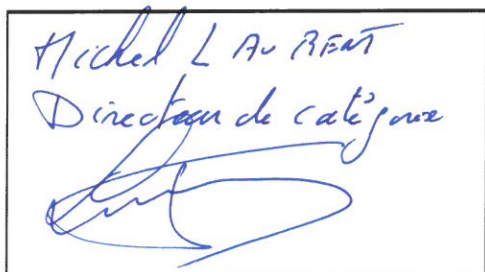 Michel LAURENT
Directeur de catégorie